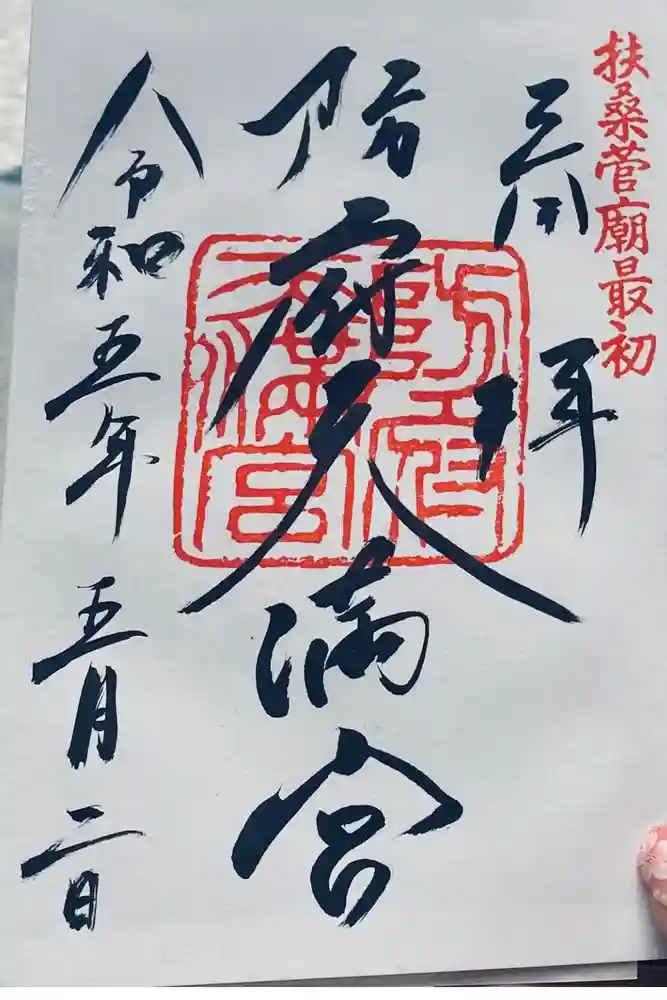 扶桑菅廟最初
奉拝
防府天満宮
令和五年五月二日